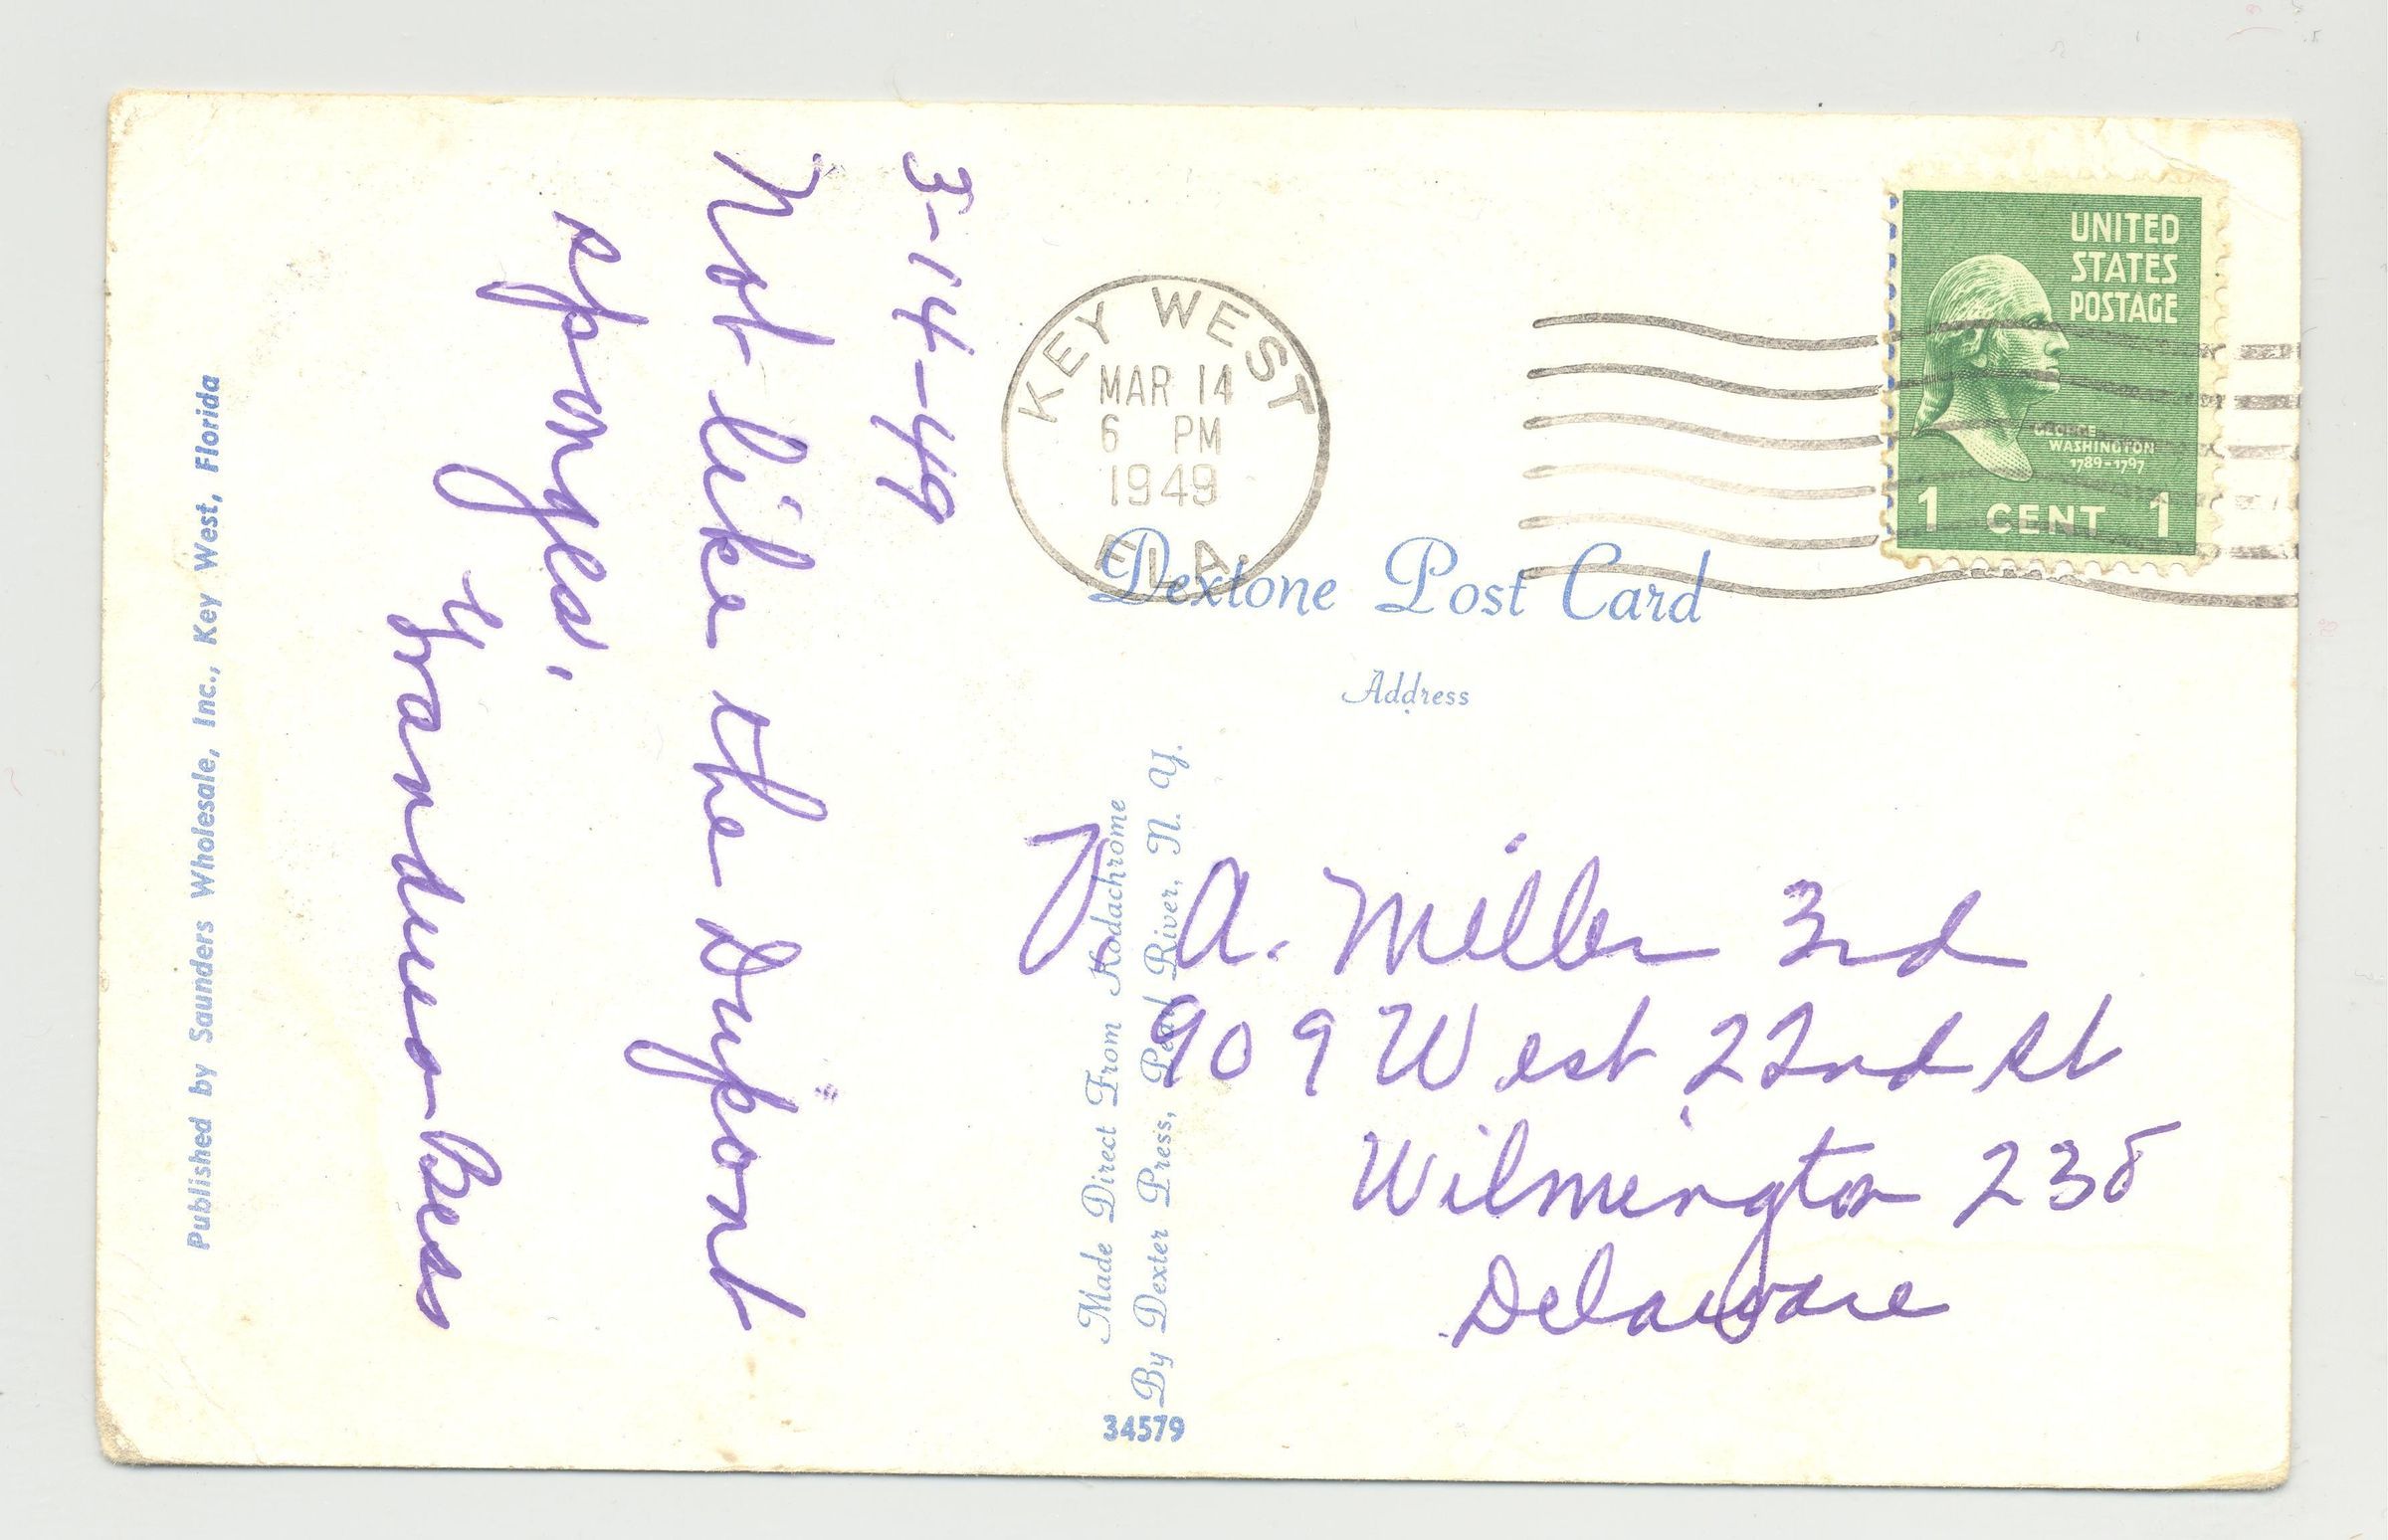 3-14-49
Not like the Dupont
sponges.
Bess
KEY WEST
MAR 14
6 PM
1949
FLA.
UNITED
STATES
POSTAGE
GEORGE
WASHINGTON
1789-1797
1 CENT 1
Dextone Post Card
Address
A. Miller 3rd
909 West 22nd St
Wilmington 238
Delaware
Made Direct From Kodachrome
By Dexter Press, Pearl River, N. Y.
34579
Published by Saunders Wholesale, Inc., Key West, Florida